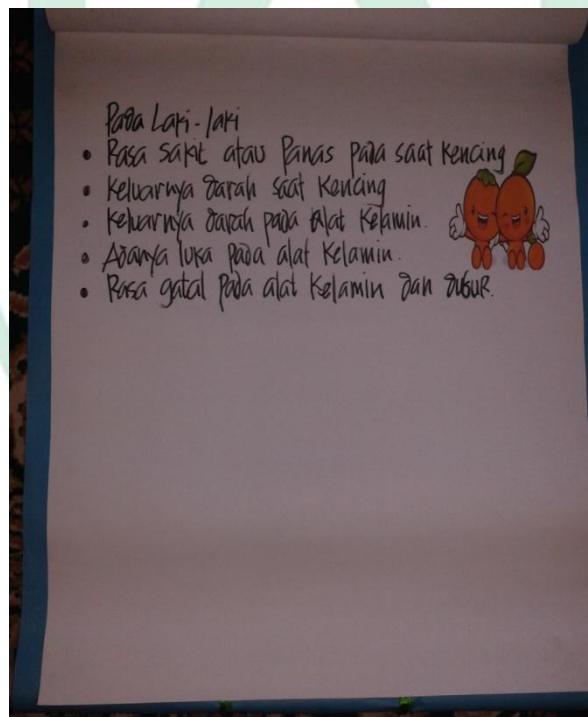 Pada Laki-laki
• Rasa sakit atau Panas pada saat kencing
• Keluarnya darah saat Kencing
• Keluarnya darah pada alat Kelamin.
• Adanya luka pada alat Kelamin.
• Rasa gatal Pada alat Kelamin dan dubur.